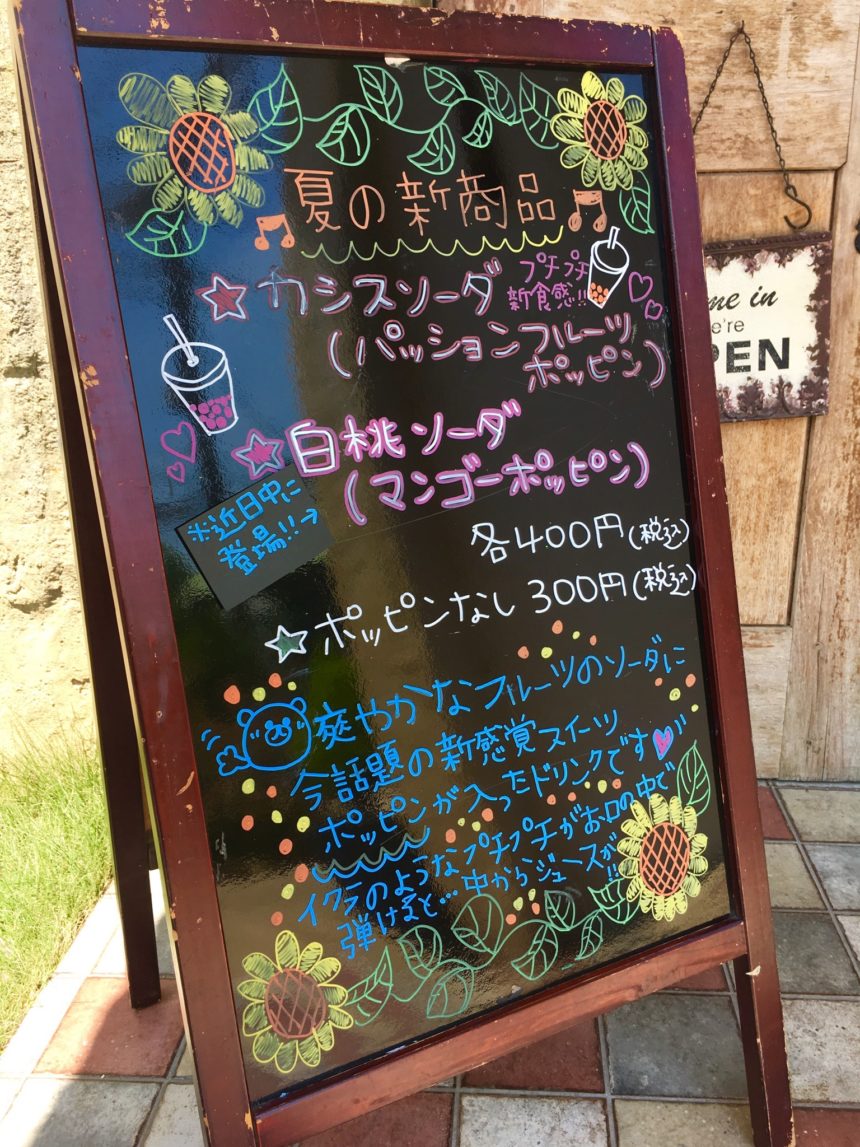 夏の新商品
カシスソーダ
プチプチ
新食感!!
(パッションフルーツ
ポッピン)
白桃ソーダ
(マンゴーポッピン)
※近日中に
登場!!→
各400円(税込)
ポッピンなし 300円(税込)
爽やかなフルーツのソーダに
今話題の新感覚スイーツ
ポッピンが入ったドリンクです
イクラのようなプチプチがお口の中で
弾けると…中からジュースが!!
me in
're
PEN